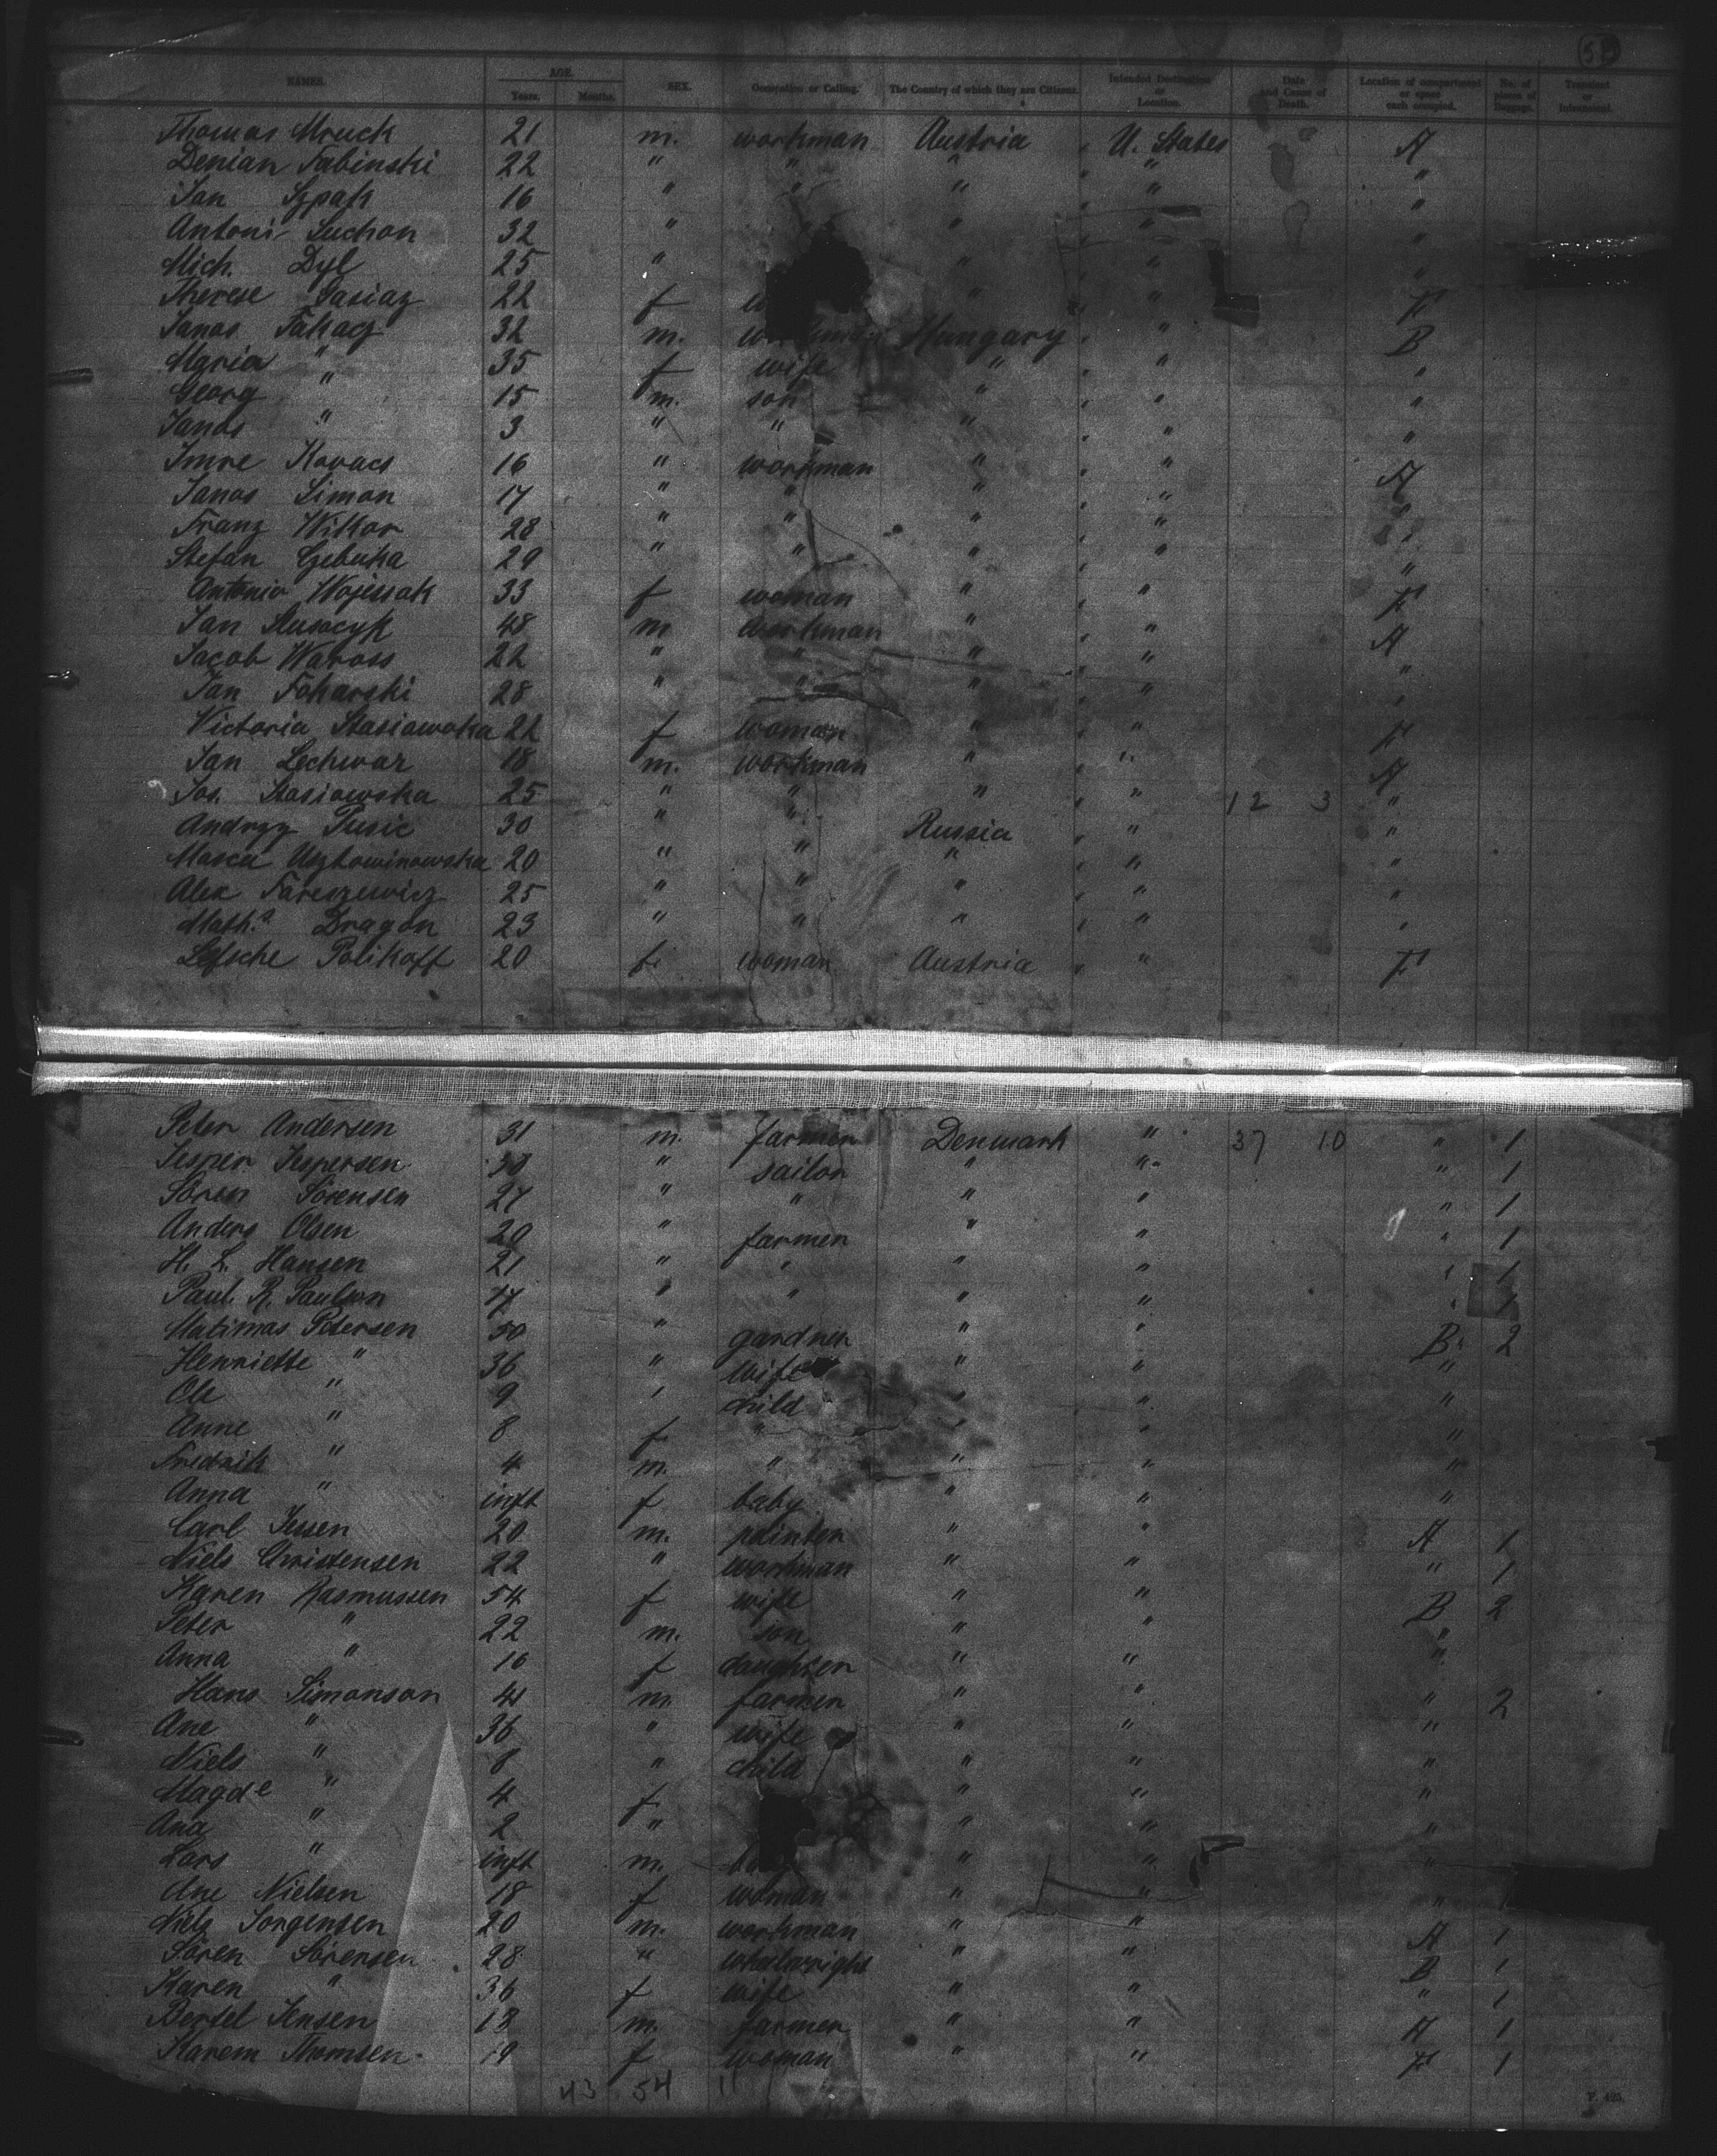 5B
NAMES. AGE. Years. Months. SEX. Occupation or Calling. The Country of which they are Citizens. Intended Destination or Location. Date and Cause of Death. Location of compartment or space each occupied. No. of pieces of Baggage. Transient or Intransient.
Thomas Mruck 21 m. workman Austria " U. States A
Denian Fabinski 22 " " " " " "
Jan Szpak 16 " " " " " "
Antoni Suchon 32 " " " " "
Mich. Dyl 25 " " " "
Therese Gasiaz 22 f " " " F
Janos Takacz 32 m. Hungary " " B
Maria " 35 f wife " " " "
Georg " 15 m. son " " " "
Janos " 3 " " " " " "
Imre Kovacs 16 " workman " " " A
Janos Simon 17 " " " " " "
Franz Wiktor 28 " " " " " "
Stefan Gebuka 29 " " " " " "
Antonia Wojessak 33 f woman " " " F
Jan 48 m workman " " " A
Jacob Waross 22 " " " " " "
Jan Foharski 28 " " " " "
Victoria Stasiawska 22 f woman " " " F
Jan Lechwar 18 m. workman " " " A
Jos. Stasiowska 25 " " " " " 12 3 "
Andrzy Pusic 30 " " Russia " " "
20 " " " " " "
Alex Fareszewicz 25 " " " " " "
Math. Dragon 23 " " " " " "
Lefsche Polikoff 20 f. woman Austria " " F
Peter Andersen 31 m. farmer Denmark " 37 10 " 1
Jesper Jespersen 30 " sailor " " " 1
Sören Sörensen 27 " " " " " 1
Anders Olsen 20 " farmer " " " 1
H. L. Hansen 21 " " " " " 1
Paul. R. Paulsen 17 " " " " " 1
Matimas Petersen 50 " gardner " " B. 2
Henriette " 36 " wife " " "
Ole " 9 " child " " "
Anne " 8 f. " " " "
Fredrik " 4 m. " " " "
Anna " inft f baby " " "
Carl Jessen 20 m. painter " " A 1
Niels Christensen 22 " workman " " " 1
Karen Rasmussen 54 f wife " " B 2
Peter " 22 m. son " " "
Anna " 10 f daughter " " "
Hans Simonson 41 m. farmer " " " 2
Ane " 36 " wife " " "
Niels " 8 " child " " "
Magde " 4 f " " "
Ana " 2 " " " "
Lars " inft m. " " "
Ane Nielsen 18 f woman " " "
Niels Jorgensen 20 m. workman " " A 1
Sören Sörensen 28 " wheelwright " " B 1
Karen " 36 f wife " " " 1
Bertel Jensen 18 m. farmer " " A 1
Karem Thomsen 19 f woman " " F 1
43 54 11
P. 425.